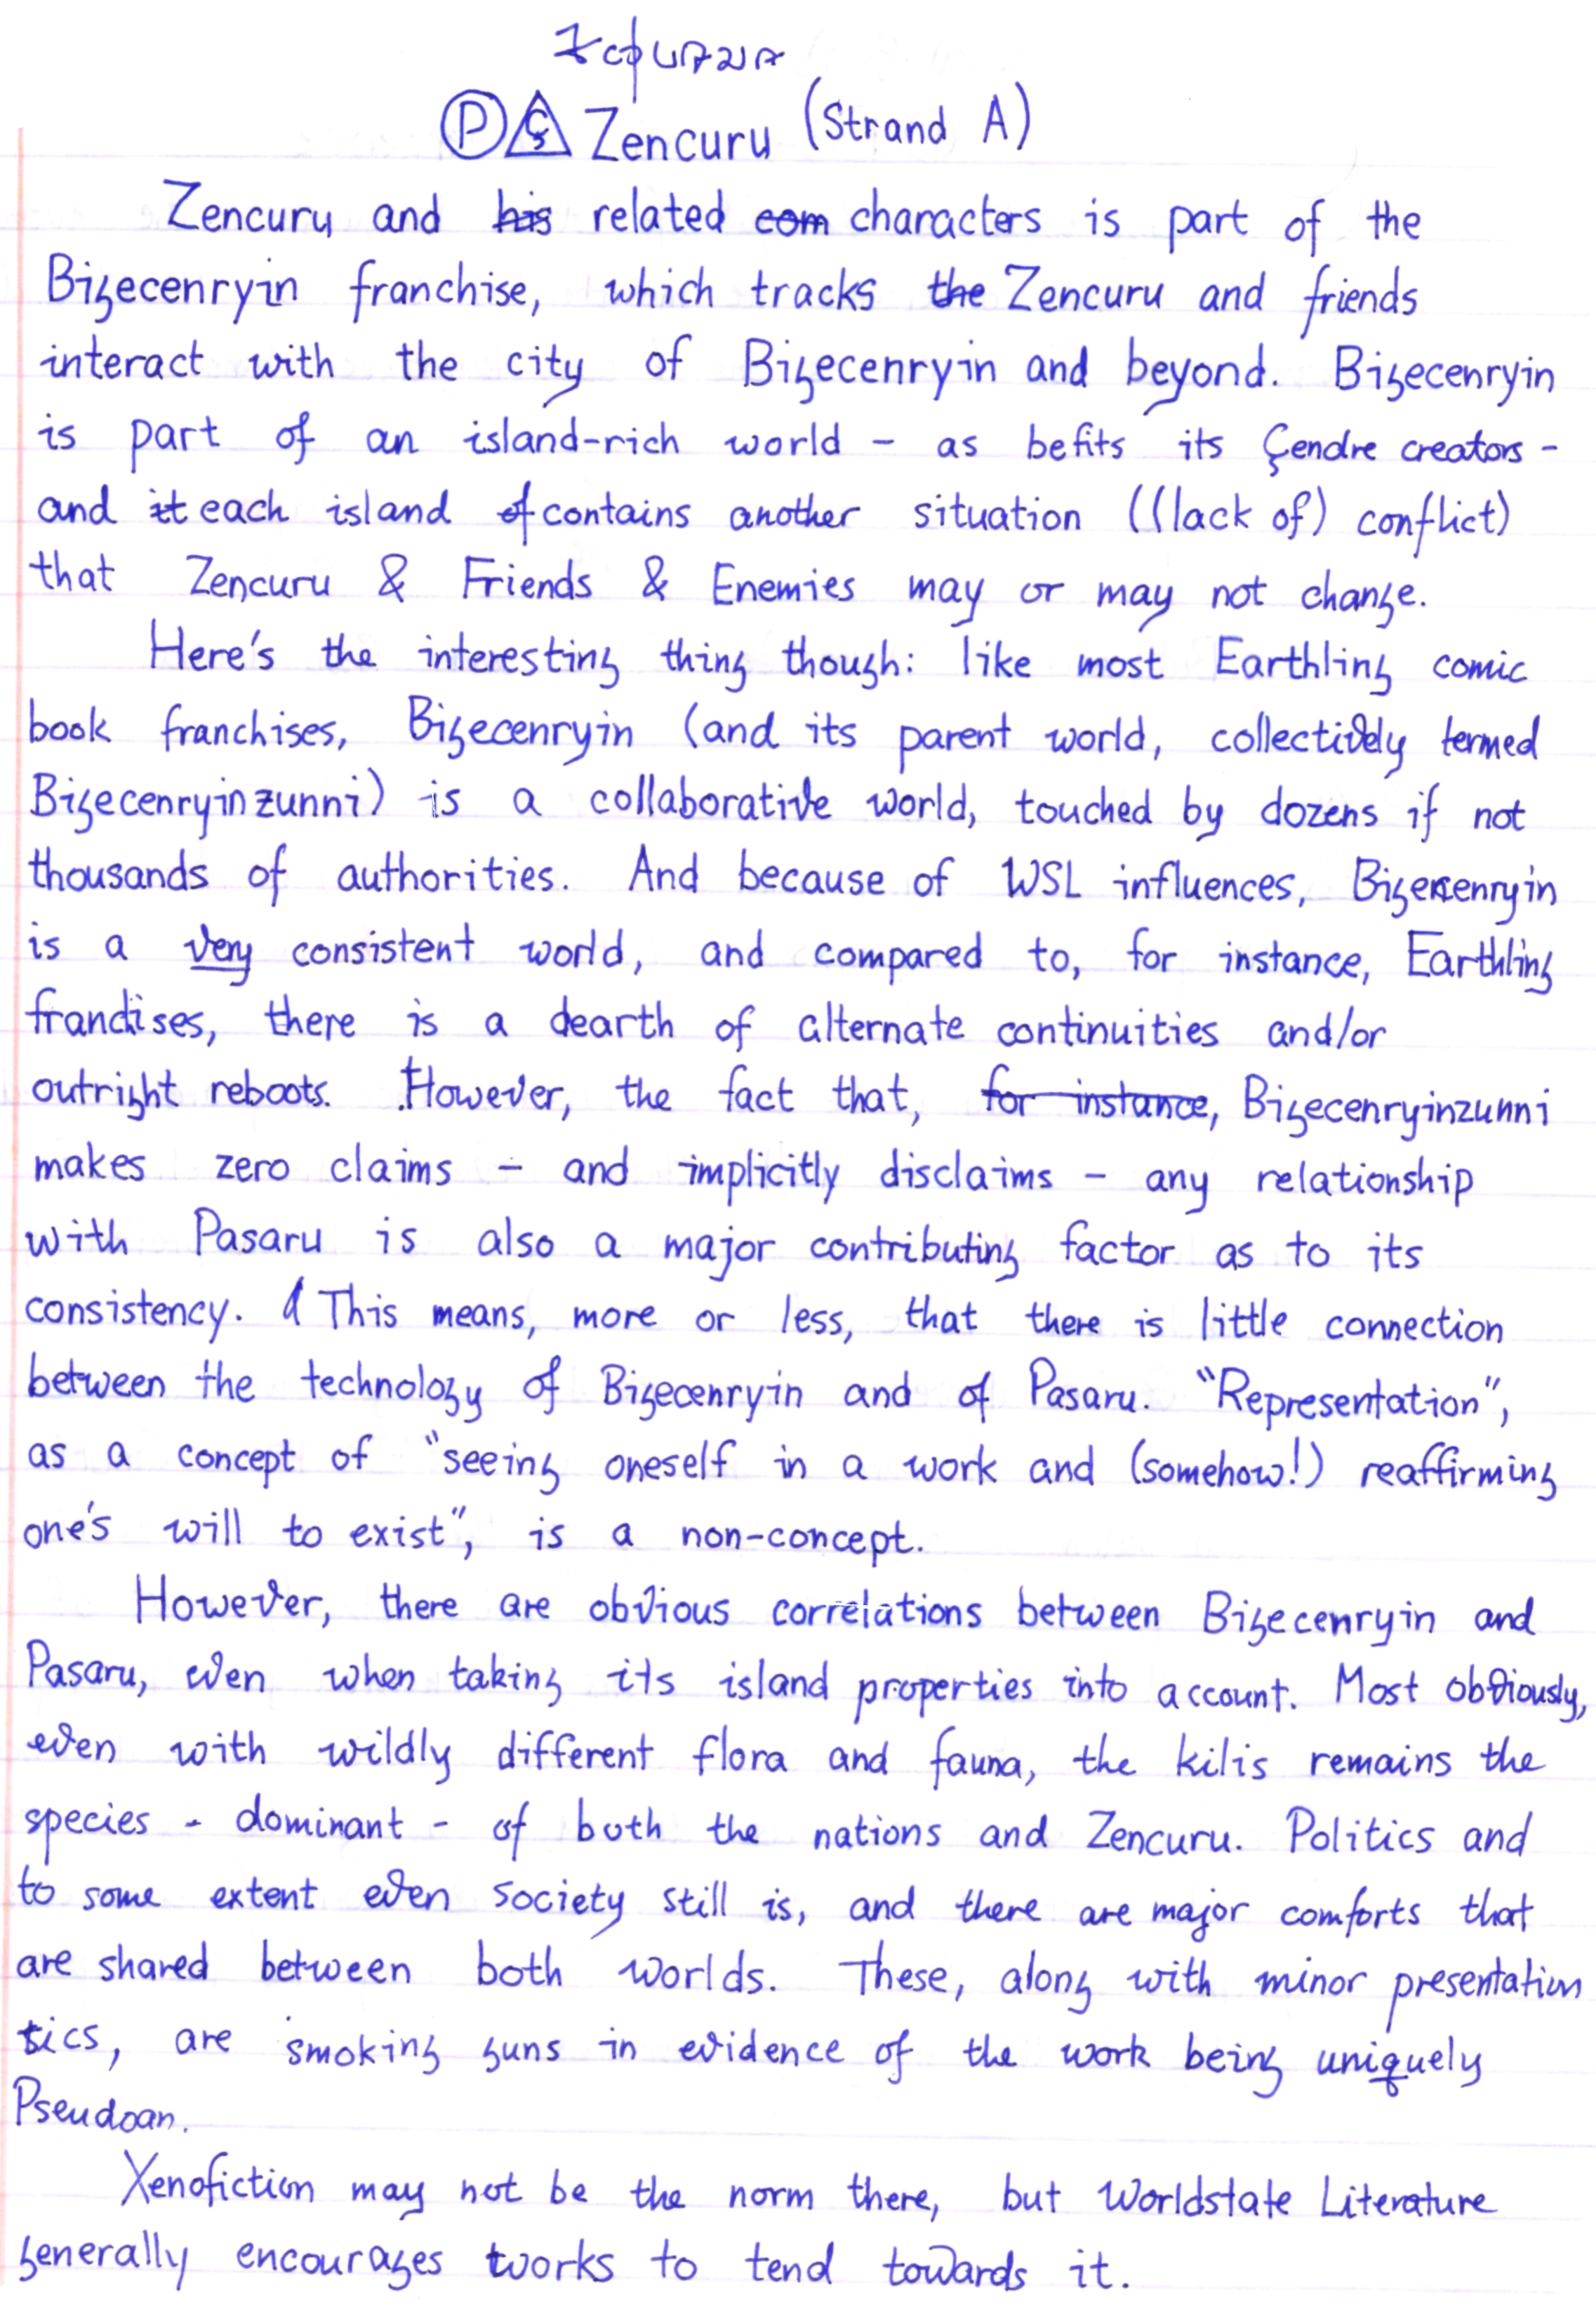 Ⓟ Ç Zencuru (Strand A)
Zencuru and his related com characters is part of the
Bigecenryin franchise, which tracks the Zencuru and friends
interact with the city of Bigecenryin and beyond. Bigecenryin
is part of an island-rich world - as befits its Çendre creators -
and it each island of contains another situation ((lack of) conflict)
that Zencuru & Friends & Enemies may or may not change.
Here's the interesting thing though: like most Earthling comic
book franchises, Bigecenryin (and its parent world, collectively termed
Bigecenryinzunni) is a collaborative world, touched by dozens if not
thousands of authorities. And because of WSL influences, Bigecenryin
is a very consistent world, and compared to, for instance, Earthling
franchises, there is a dearth of alternate continuities and/or
outright reboots. However, the fact that, for instance, Bigecenryinzunni
makes zero claims - and implicitly disclaims - any relationship
with Pasaru is also a major contributing factor as to its
consistency. This means, more or less, that there is little connection
between the technology of Bigecenryin and of Pasaru. "Representation",
as a concept of "seeing oneself in a work and (somehow!) reaffirming
one's will to exist", is a non-concept.
However, there are obvious correlations between Bigecenryin and
Pasaru, even when taking its island properties into account. Most obviously,
even with wildly different flora and fauna, the kilis remains the
species - dominant - of both the nations and Zencuru. Politics and
to some extent even society still is, and there are major comforts that
are shared between both worlds. These, along with minor presentation
tics, are smoking guns in evidence of the work being uniquely
Pseudoan.
Xenofiction may not be the norm there, but Worldstate Literature
generally encourages works to tend towards it.